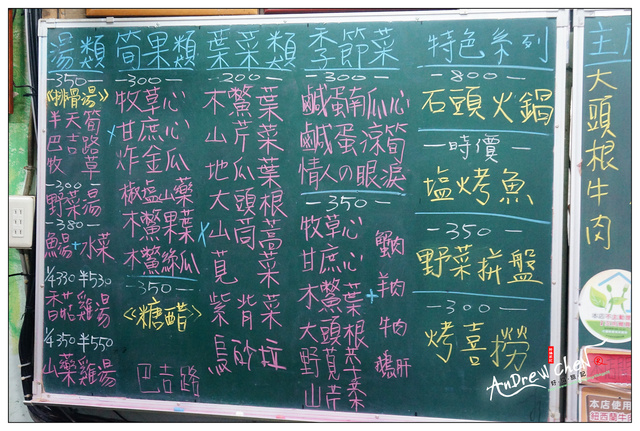 湯類
-350-
《排骨湯》
半天筍
巴吉路
牧草
-300-
野菜湯
-380-
魚湯+水菜
1/4 330 半530
香菇雞湯
1/4 350 半550
山藥雞湯
筒果類
-300-
牧草心
x甘庶心
炸金瓜
椒塩山藥
木鱉果葉
木鱉絲瓜
-350-
《糖醋》
巴吉路
葉菜類
-200-
木鱉葉
山芹菜
地瓜葉
大頭根
x山茼蒿
莧菜
紫背菜
烏砂拉
季節菜
-300-
鹹蛋南瓜心
鹹蛋涼筍
情人の眼淚
-350-
牧草心
甘庶心
木鱉葉
大頭根
野莧菜
山芹菜
+
蝦肉
羊肉
牛肉
豬肝
特色系列
-800-
石頭火鍋
-時價-
塩烤魚
-350-
野菜拼盤
-300-
烤喜撈
Andrew Chen
主
大頭根牛肉
本店使用